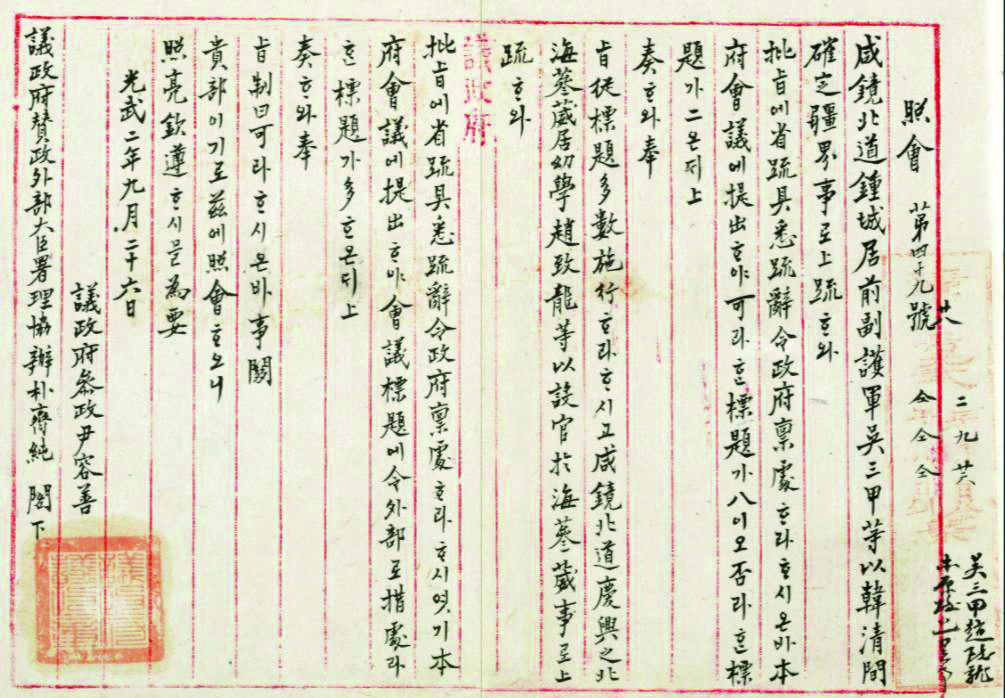 照會 第四十九號
咸鏡北道鍾城居前副護軍吳三甲等以韓清間
確定疆界事로上疏ᄒᆞ와
批旨에省疏具悉疏辭令政府稟處ᄒᆞ라ᄒᆞ시온바本
府會議에提出ᄒᆞ야可라ᄒᆞᆫ標題가八이오否라ᄒᆞᆫ標
題가二온디上
奏ᄒᆞ와奉
旨從標題多數施行ᄒᆞ라ᄒᆞ시고咸鏡北道慶興之北
海蔘葳居幼學趙致龍等以設官於海蔘葳事로上
疏ᄒᆞ와
批旨에省疏具悉疏辭令政府稟處ᄒᆞ라ᄒᆞ시엿기本
府會議에提出ᄒᆞ야會議標題에令外部로措處라
ᄒᆞᆫ標題가多ᄒᆞ온디上
奏ᄒᆞ와奉
旨制曰可라ᄒᆞ시온바事關
貴部이기로玆에照會ᄒᆞ오니
照亮欽遵ᄒᆞ시믈為要
光武二年九月二十六日
議政府參政尹容善
議政府贊政外部大臣署理協辦朴齊純 閤下
議政府
二 九 廿八
仝 仝 仝
吳三甲趙致龍